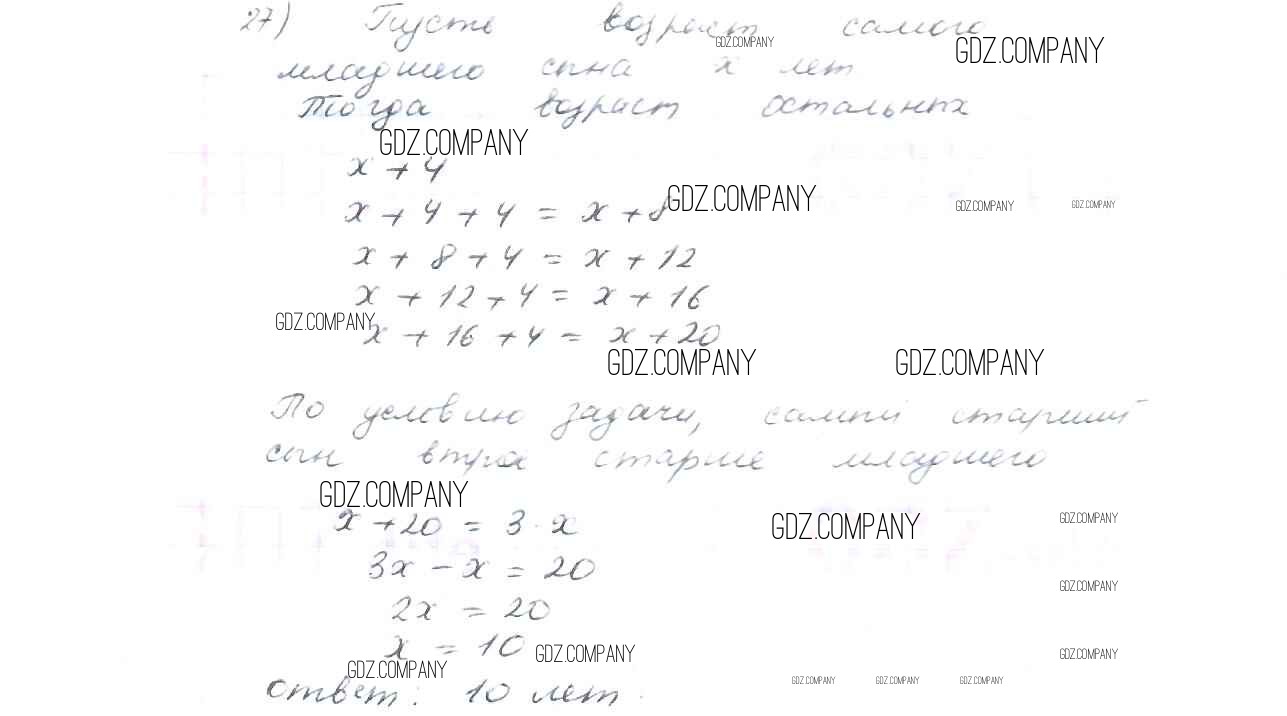 27) Пусть возраст самого
GDZ.COMPANY
GDZ.COMPANY
младшего сына x лет
Тогда возраст остальных
GDZ.COMPANY
x + 4
x + 4 + 4 = x + 8
GDZ.COMPANY
GDZ.COMPANY
GDZ.COMPANY
x + 8 + 4 = x + 12
x + 12 + 4 = x + 16
GDZ.COMPANY
x + 16 + 4 = x + 20
GDZ.COMPANY
GDZ.COMPANY
По условию задачи, самый старший
сын втрое старше младшего
GDZ.COMPANY
x + 20 = 3 · x
GDZ.COMPANY
GDZ.COMPANY
3x - x = 20
GDZ.COMPANY
2x = 20
x = 10
GDZ.COMPANY
GDZ.COMPANY
GDZ.COMPANY
GDZ.COMPANY
GDZ.COMPANY
GDZ.COMPANY
ответ: 10 лет.